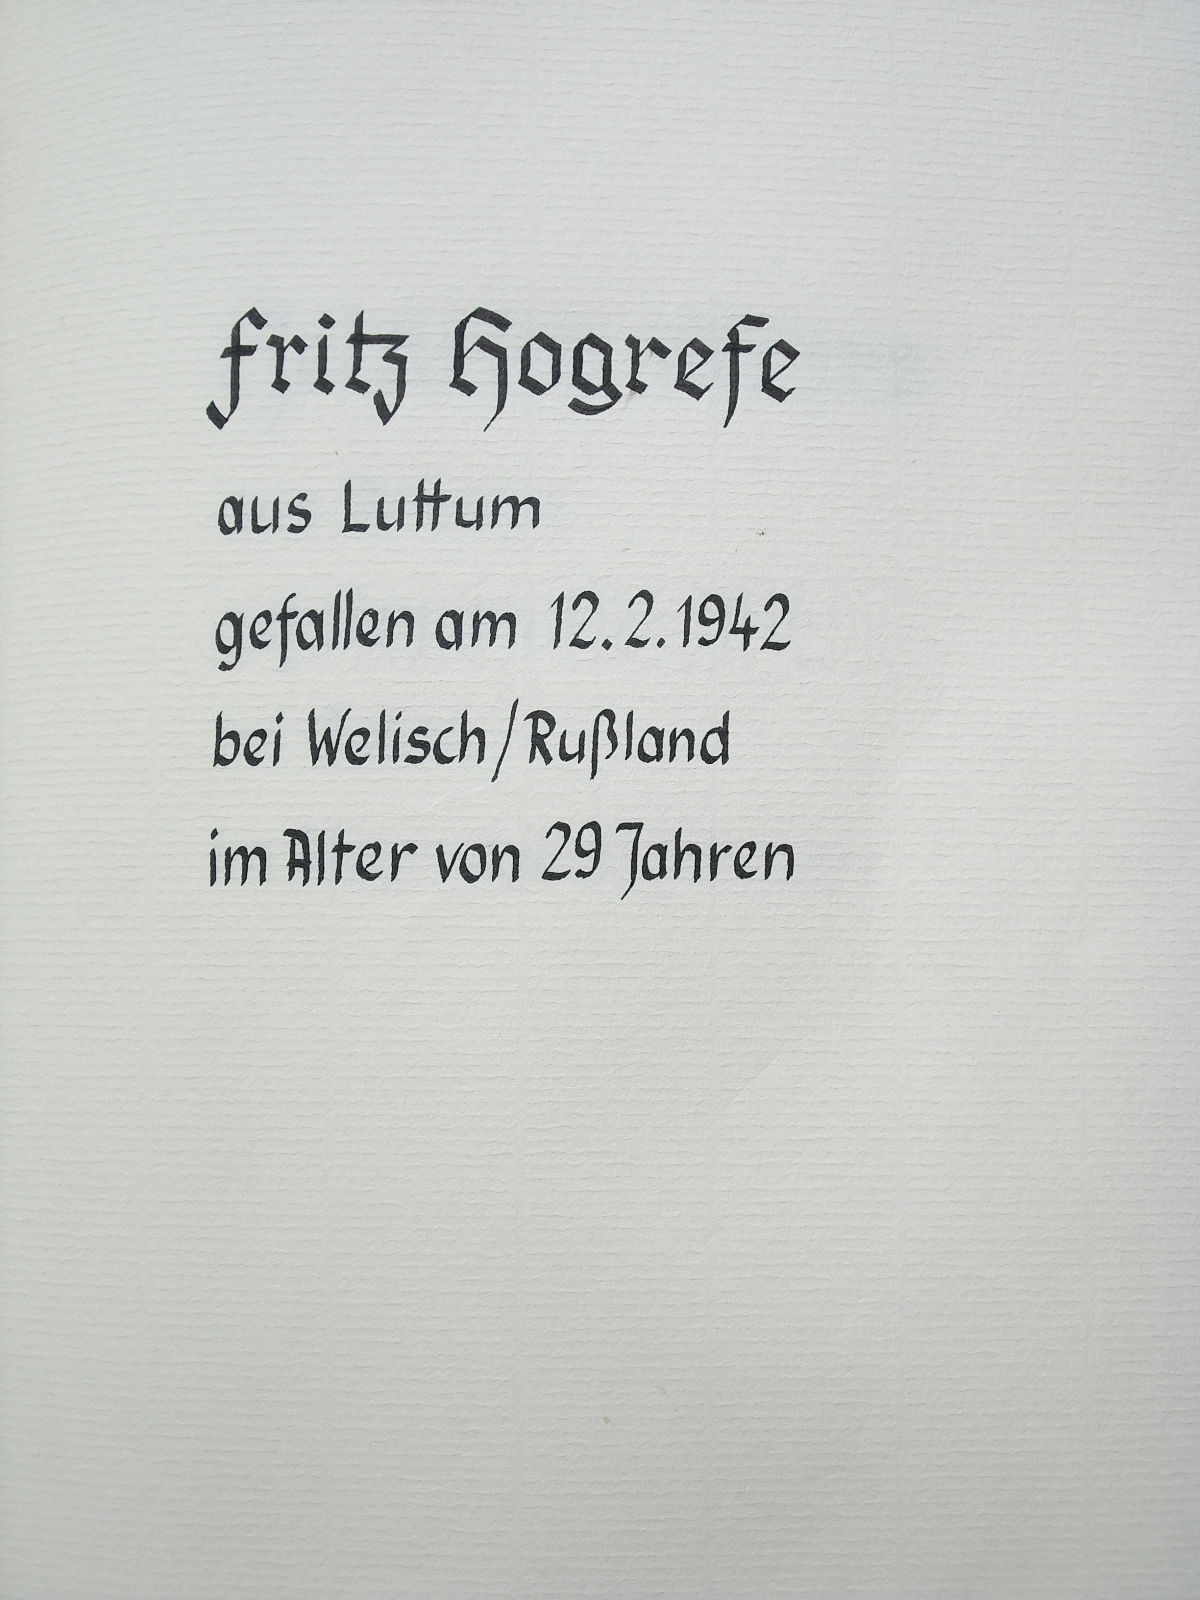 Fritz Hogrefe
aus Luttum
gefallen am 12.2.1942
bei Welisch/Rußland
im Alter von 29 Jahren